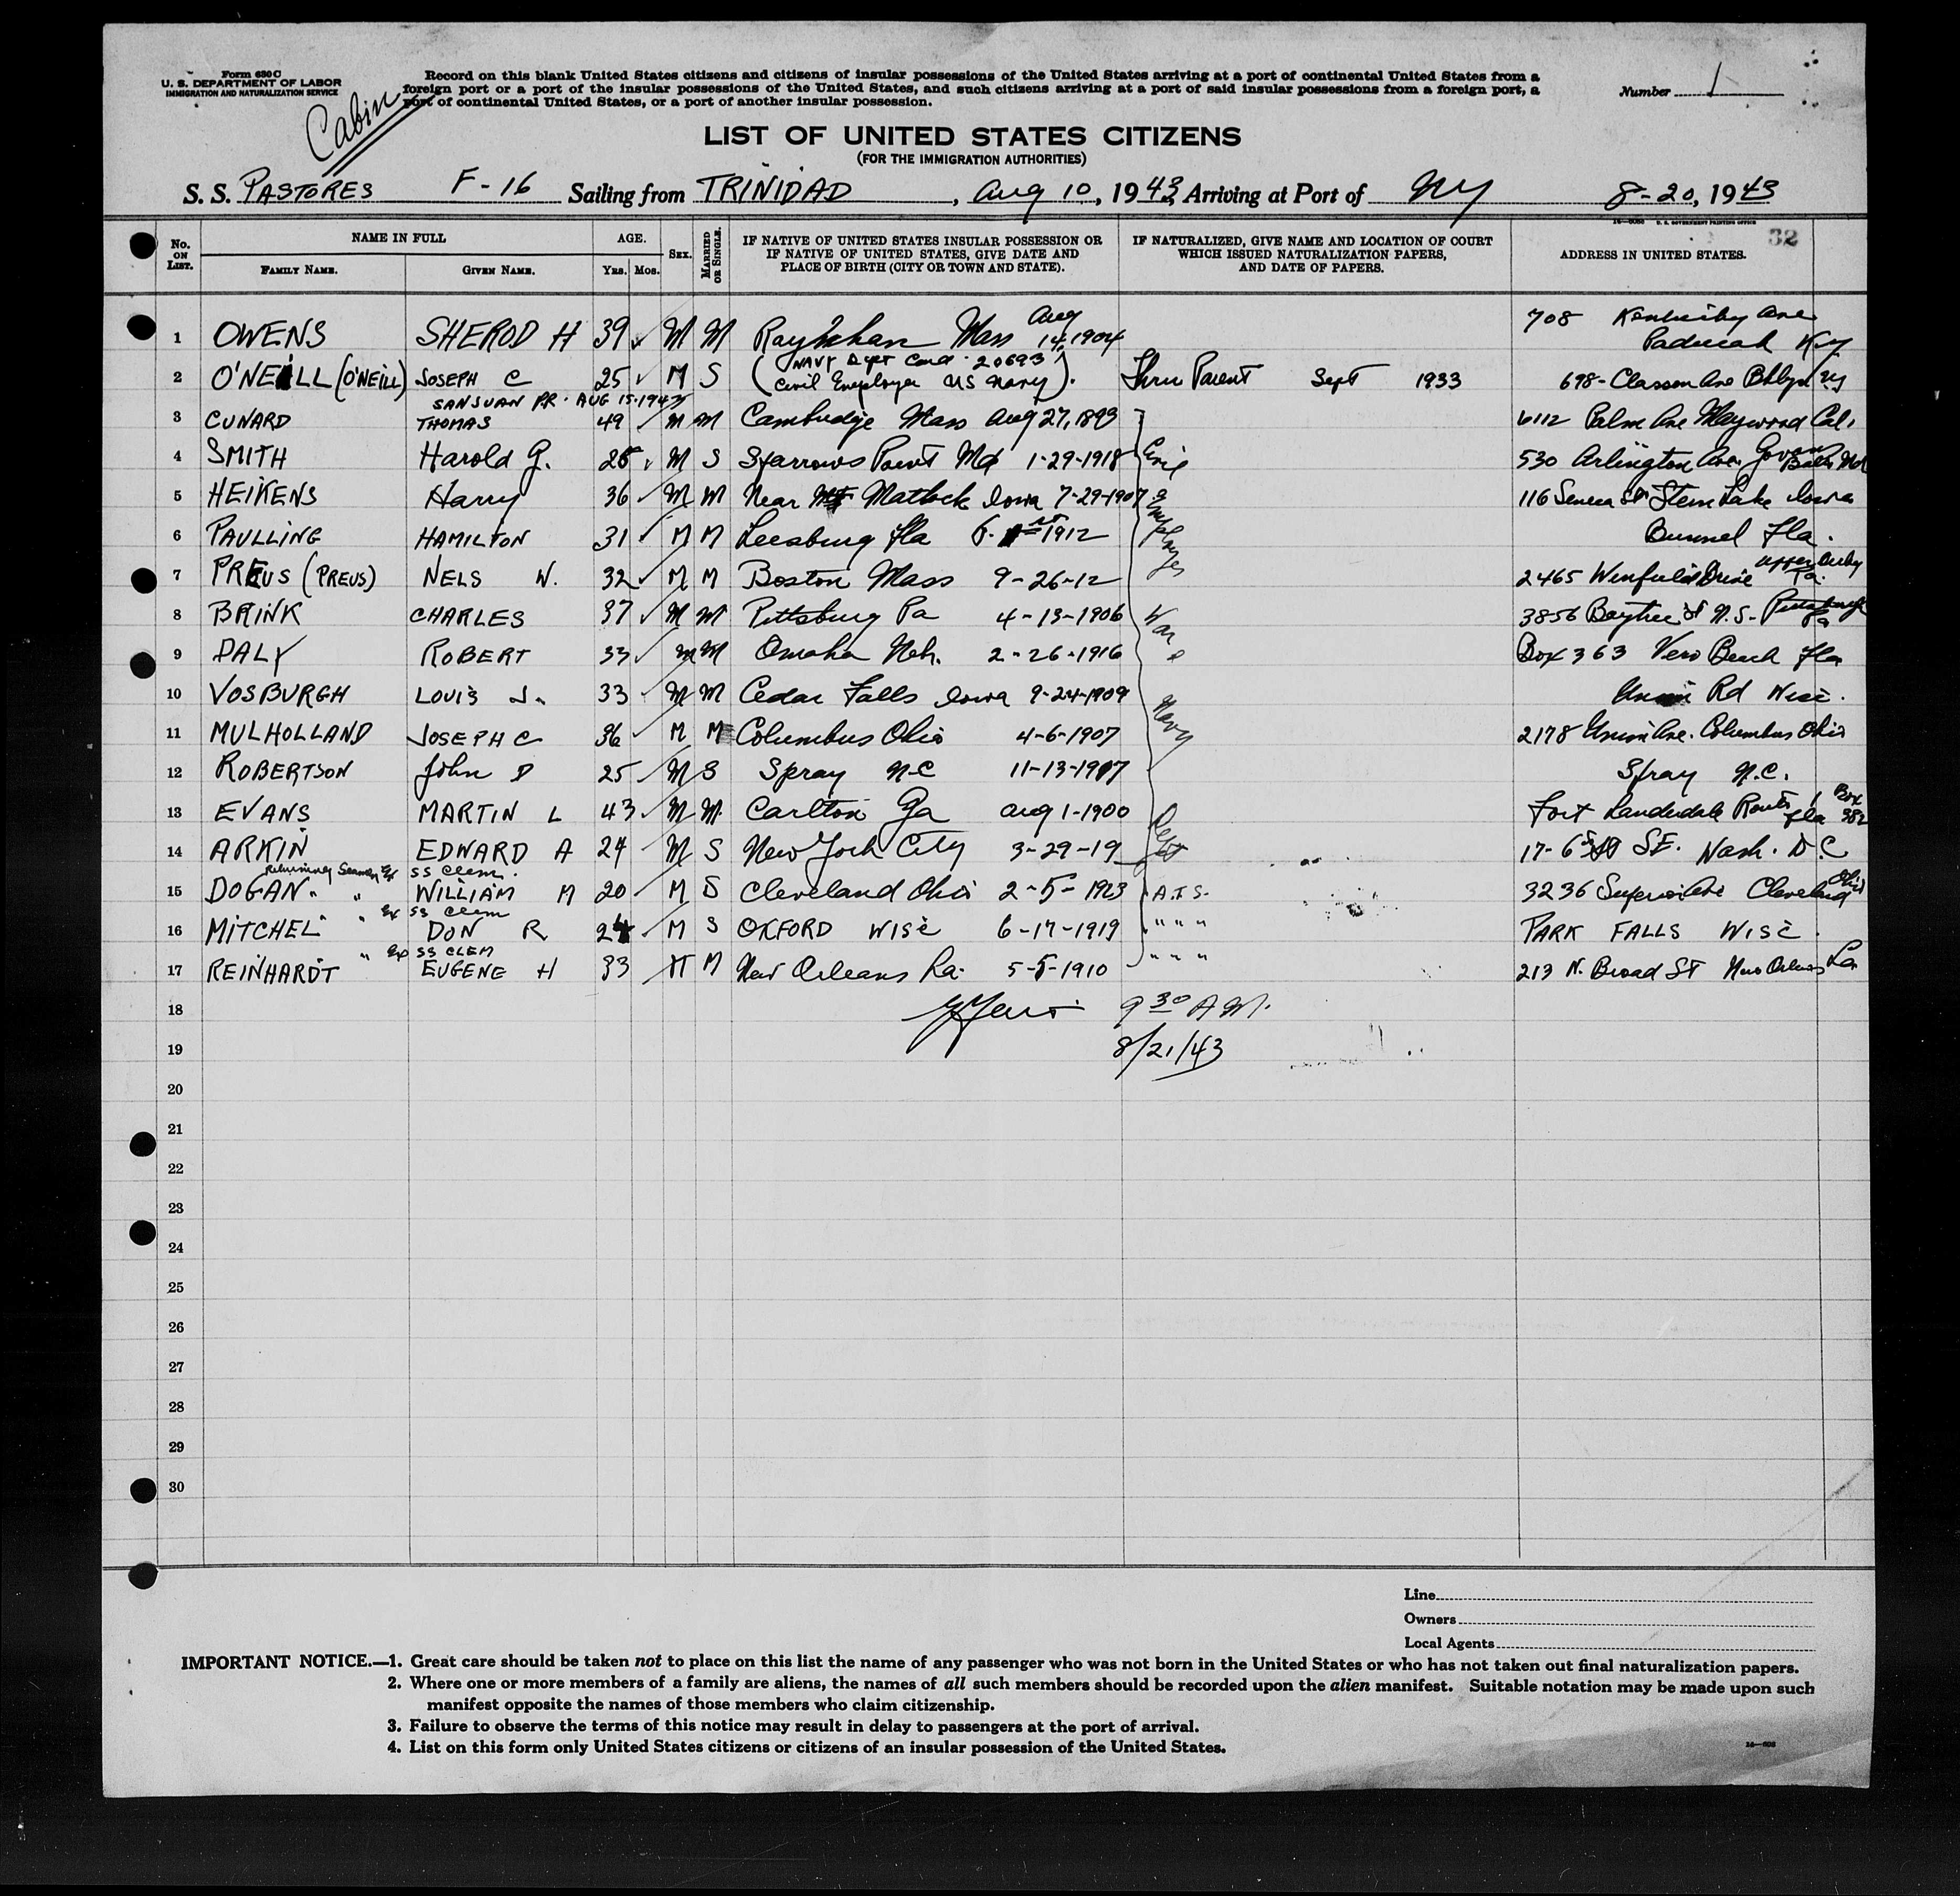 Form 630 C
U. S. DEPARTMENT OF LABOR
IMMIGRATION AND NATURALIZATION SERVICE
Cabin
Record on this blank United States citizens and citizens of insular possessions of the United States arriving at a port of continental United States from a
foreign port or a port of the insular possessions of the United States, and such citizens arriving at a port of said insular possessions from a foreign port, a
port of continental United States, or a port of another insular possession.
Number 1
LIST OF UNITED STATES CITIZENS
(FOR THE IMMIGRATION AUTHORITIES)
S. S. PASTORES F-16 Sailing from TRINIDAD, Aug 10, 1943, Arriving at Port of NY 8-20, 1943
U. S. GOVERNMENT PRINTING OFFICE
32
No. ON LIST. NAME IN FULL AGE. SEX. MARRIED OR SINGLE. IF NATIVE OF UNITED STATES INSULAR POSSESSION OR IF NATIVE OF UNITED STATES, GIVE DATE AND PLACE OF BIRTH (CITY OR TOWN AND STATE). IF NATURALIZED, GIVE NAME AND LOCATION OF COURT WHICH ISSUED NATURALIZATION PAPERS, AND DATE OF PAPERS. ADDRESS IN UNITED STATES.
FAMILY NAME. GIVEN NAME. YRS. MOS.
1 OWENS SHEROD H 39 M M Mass Aug 14, 1904 708 Ave Paducah Ky
2 O'NEILL (O'NEILL) JOSEPH C 25 M S (NAVY Dept Card 20693 Civil Employee US Navy). Thru Parent Sept 1933 698- Classon Ave Bklyn NY
SAN JUAN PR. AUG 15-1943
3 CUNARD THOMAS 49 M M Cambridge Mass Aug 27, 1893 6112 Palm Ave Maywood Cal.
4 SMITH Harold G. 25 M S Sparrows Point Md 1-29-1918 530 Arlington Ave. Govans Balto Md
5 HEIKENS Harry 36 M M Near Matlock Iowa 7-29-1907 116 Seneca St Lake Iowa
6 PAULLING HAMILTON 31 M M Leesburg Fla 1912 Bunnel Fla.
7 PREUS (PREUS) NELS W. 32 M M Boston Mass 9-26-12 2465 Winfield Drive Upper Darby Pa.
8 BRINK CHARLES 37 M M Pittsburg Pa 4-13-1906 3856 Baytree St N.S. Pittsburgh Pa
9 DALY ROBERT 33 M M Omaha Neb. 2-26-1916 Box 363 Vero Beach Fla
10 VOSBURGH LOUIS J. 33 M M Cedar Falls Iowa 9-24-1909 Rd Wisc.
11 MULHOLLAND JOSEPH C 36 M M Columbus Ohio 4-6-1907 2178 Union Ave. Columbus Ohio
12 ROBERTSON John D 25 M S Spray N.C 11-13-1917 Spray N.C.
13 EVANS MARTIN L 43 M M Carlton Ga Aug 1-1900 Fort Lauderdale Route 1 Box 982 Fla
14 ARKIN EDWARD A 24 M S New York City 3-29-19 17-6 St SE. Wash. D.C
Civil Employees War & Navy Dept
Returning Seamen Ex SS Clem.
15 DOGAN WILLIAM M 20 M S Cleveland Ohio 2-5-1923 A.T.S. 3236 Superior Ave Cleveland Ohio
" " Ex SS Clem
16 MITCHEL DON R 24 M S OXFORD WISC 6-17-1919 " " " PARK FALLS WISC
" Ex SS CLEM
17 REINHARDT EUGENE H 33 M M New Orleans La. 5-5-1910 " " " 213 N. Broad ST New Orleans La
18 9 30 A.M.
19 8/21/43
20
21
22
23
24
25
26
27
28
29
30
Line
Owners
Local Agents
IMPORTANT NOTICE.—1. Great care should be taken not to place on this list the name of any passenger who was not born in the United States or who has not taken out final naturalization papers.
2. Where one or more members of a family are aliens, the names of all such members should be recorded upon the alien manifest. Suitable notation may be made upon such
manifest opposite the names of those members who claim citizenship.
3. Failure to observe the terms of this notice may result in delay to passengers at the port of arrival.
4. List on this form only United States citizens or citizens of an insular possession of the United States.